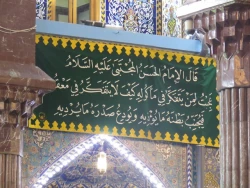 قال الإمام الحسن المجتبى عليه السلام
عجبت لمن يتفكر في مأكوله كيف لا يتفكر في معقوله
فيجنب بطنه ما يؤذيه ويودع صدره ما يرديه